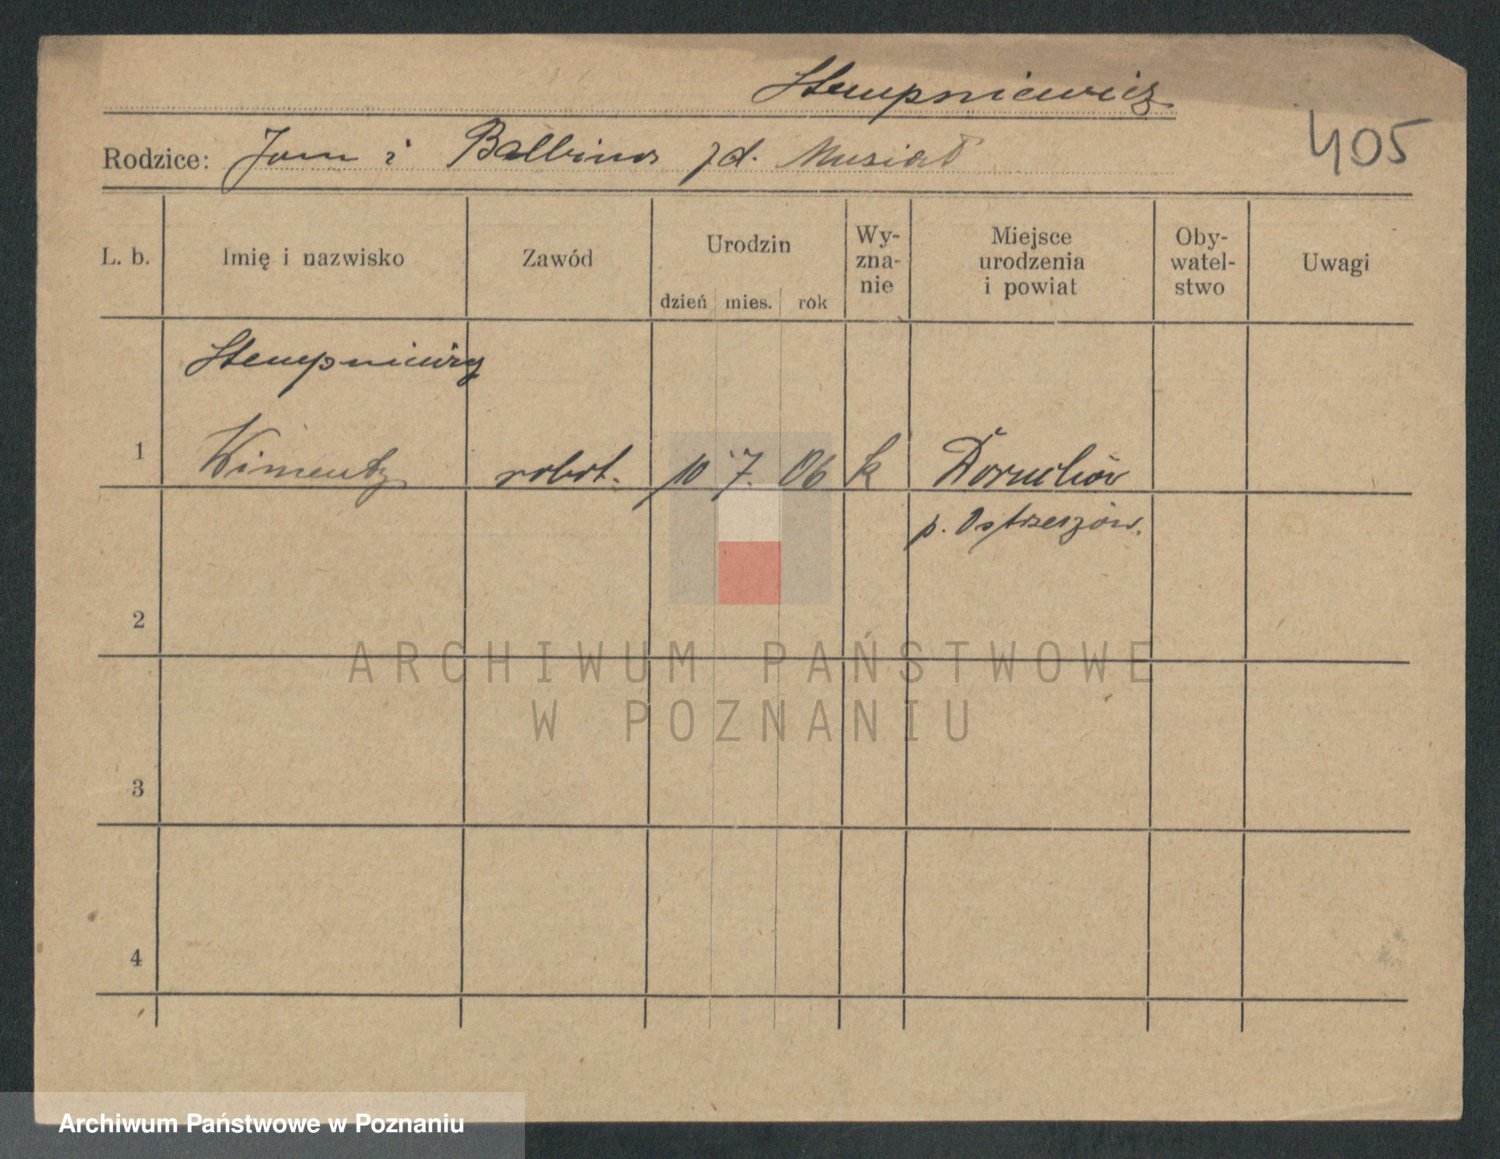 Stempniewicz
405
Rodzice: Jan i Balbina zd. Musiał
L. b. Imię i nazwisko Zawód Urodzin Wy-zna-nie Miejsce urodzenia i powiat Oby-watel-stwo Uwagi
dzień mies. rok
Stempniewicz
1 robot. 10 7. 06 k Doruchów
p. Ostrzeszów.
2
ARCHIWUM PAŃSTWOWE
W POZNANIU
3
4
Archiwum Państwowe w Poznaniu